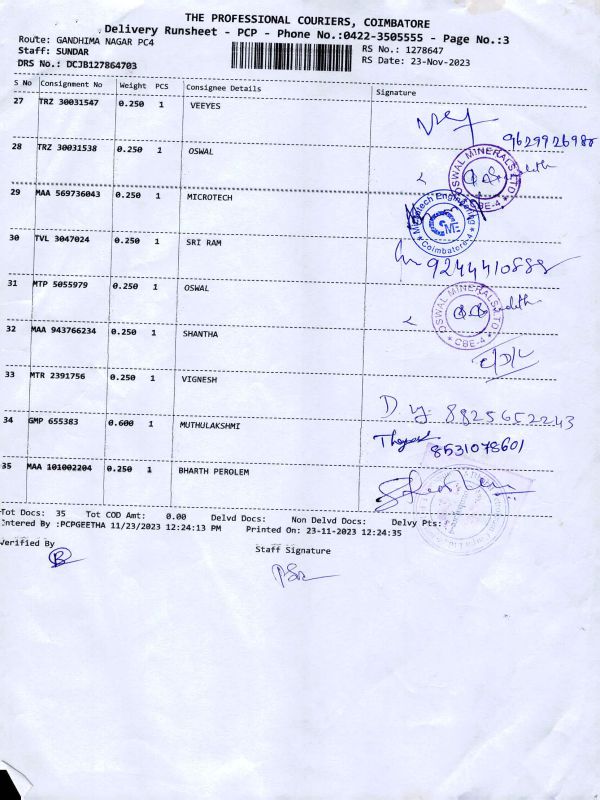 THE PROFESSIONAL COURIERS, COIMBATORE
Delivery Runsheet - PCP - Phone No.:0422-3505555 - Page No.:3
Route: GANDHIMA NAGAR PC4
RS No.: 1278647
Staff: SUNDAR
RS Date: 23-Nov-2023
DRS No.: DCJB127864703
S No Consignment No Weight PCS Consignee Details Signature
27 TRZ 30031547 0.250 1 VEEYES
9629926980
28 TRZ 30031538 0.250 1 OSWAL
OSWAL MINERALS LTD
CBE-4
29 MAA 569736043 0.250 1 MICROTECH
Microtech Engineering
Coimbatore-4
30 TVL 3047024 0.250 1 SRI RAM
9244410888
31 MTP 5055979 0.250 1 OSWAL
OSWAL MINERALS LTD
CBE-4
32 MAA 943766234 0.250 1 SHANTHA
33 MTR 2391756 0.250 1 VIGNESH
8825652243
34 GMP 655383 0.600 1 MUTHULAKSHMI
8531078601
35 MAA 101002204 0.250 1 BHARTH PEROLEM
Tot Docs: 35 Tot COD Amt: 0.00 Delvd Docs: Non Delvd Docs: Delvy Pts:
Entered By :PCPGEETHA 11/23/2023 12:24:13 PM Printed On: 23-11-2023 12:24:35
Verified By
Staff Signature